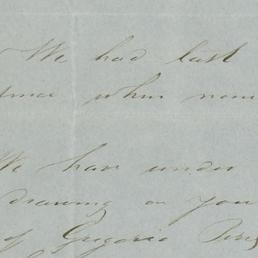 We had last
since when none
We have under
drawing on you
of Gregorio